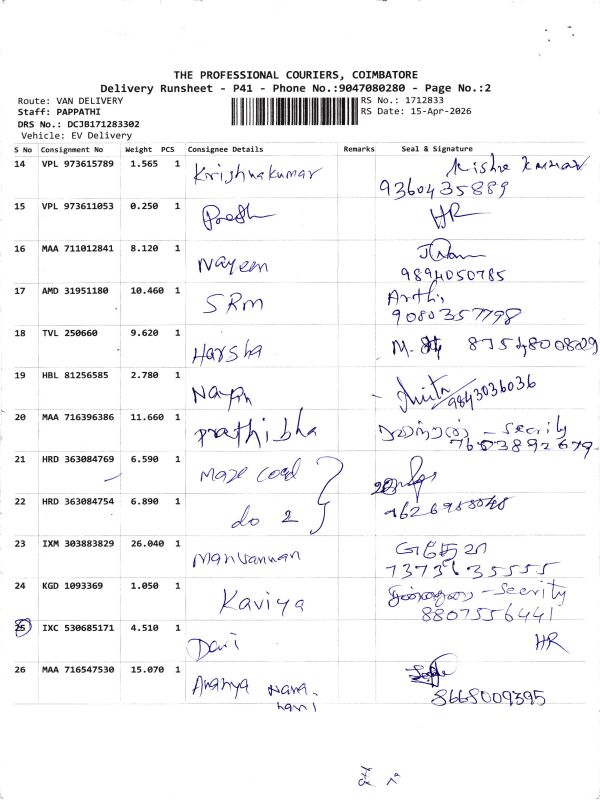 THE PROFESSIONAL COURIERS, COIMBATORE
Delivery Runsheet - P41 - Phone No.:9047080280 - Page No.:2
Route: VAN DELIVERY RS No.: 1712833
Staff: PAPPATHI RS Date: 15-Apr-2026
DRS No.: DCJB171283302
Vehicle: EV Delivery
S No Consignment No Weight PCS Consignee Details Remarks Seal & Signature
14 VPL 973615789 1.565 1 Krishnakumar Kishre Kumar
9360435889
15 VPL 973611053 0.250 1 HR
16 MAA 711012841 8.120 1 Nayeem
9894050785
17 AMD 31951180 10.460 1 SRM Arthi
9080357798
18 TVL 250660 9.620 1 Harsha M. 8754800809
19 HBL 81256585 2.780 1 9843036036
20 MAA 716396386 11.660 1 Prathibha - Secrity
7603892679
21 HRD 363084769 6.590 1
22 HRD 363084754 6.890 1 do 2
23 IXM 303883829 26.040 1 Manivannan
7373135555
24 KGD 1093369 1.050 1 Kaviya - Secrity
8807556441
25 IXC 530685171 4.510 1 HR
26 MAA 716547530 15.070 1 Ananya nana
nani 8668009395